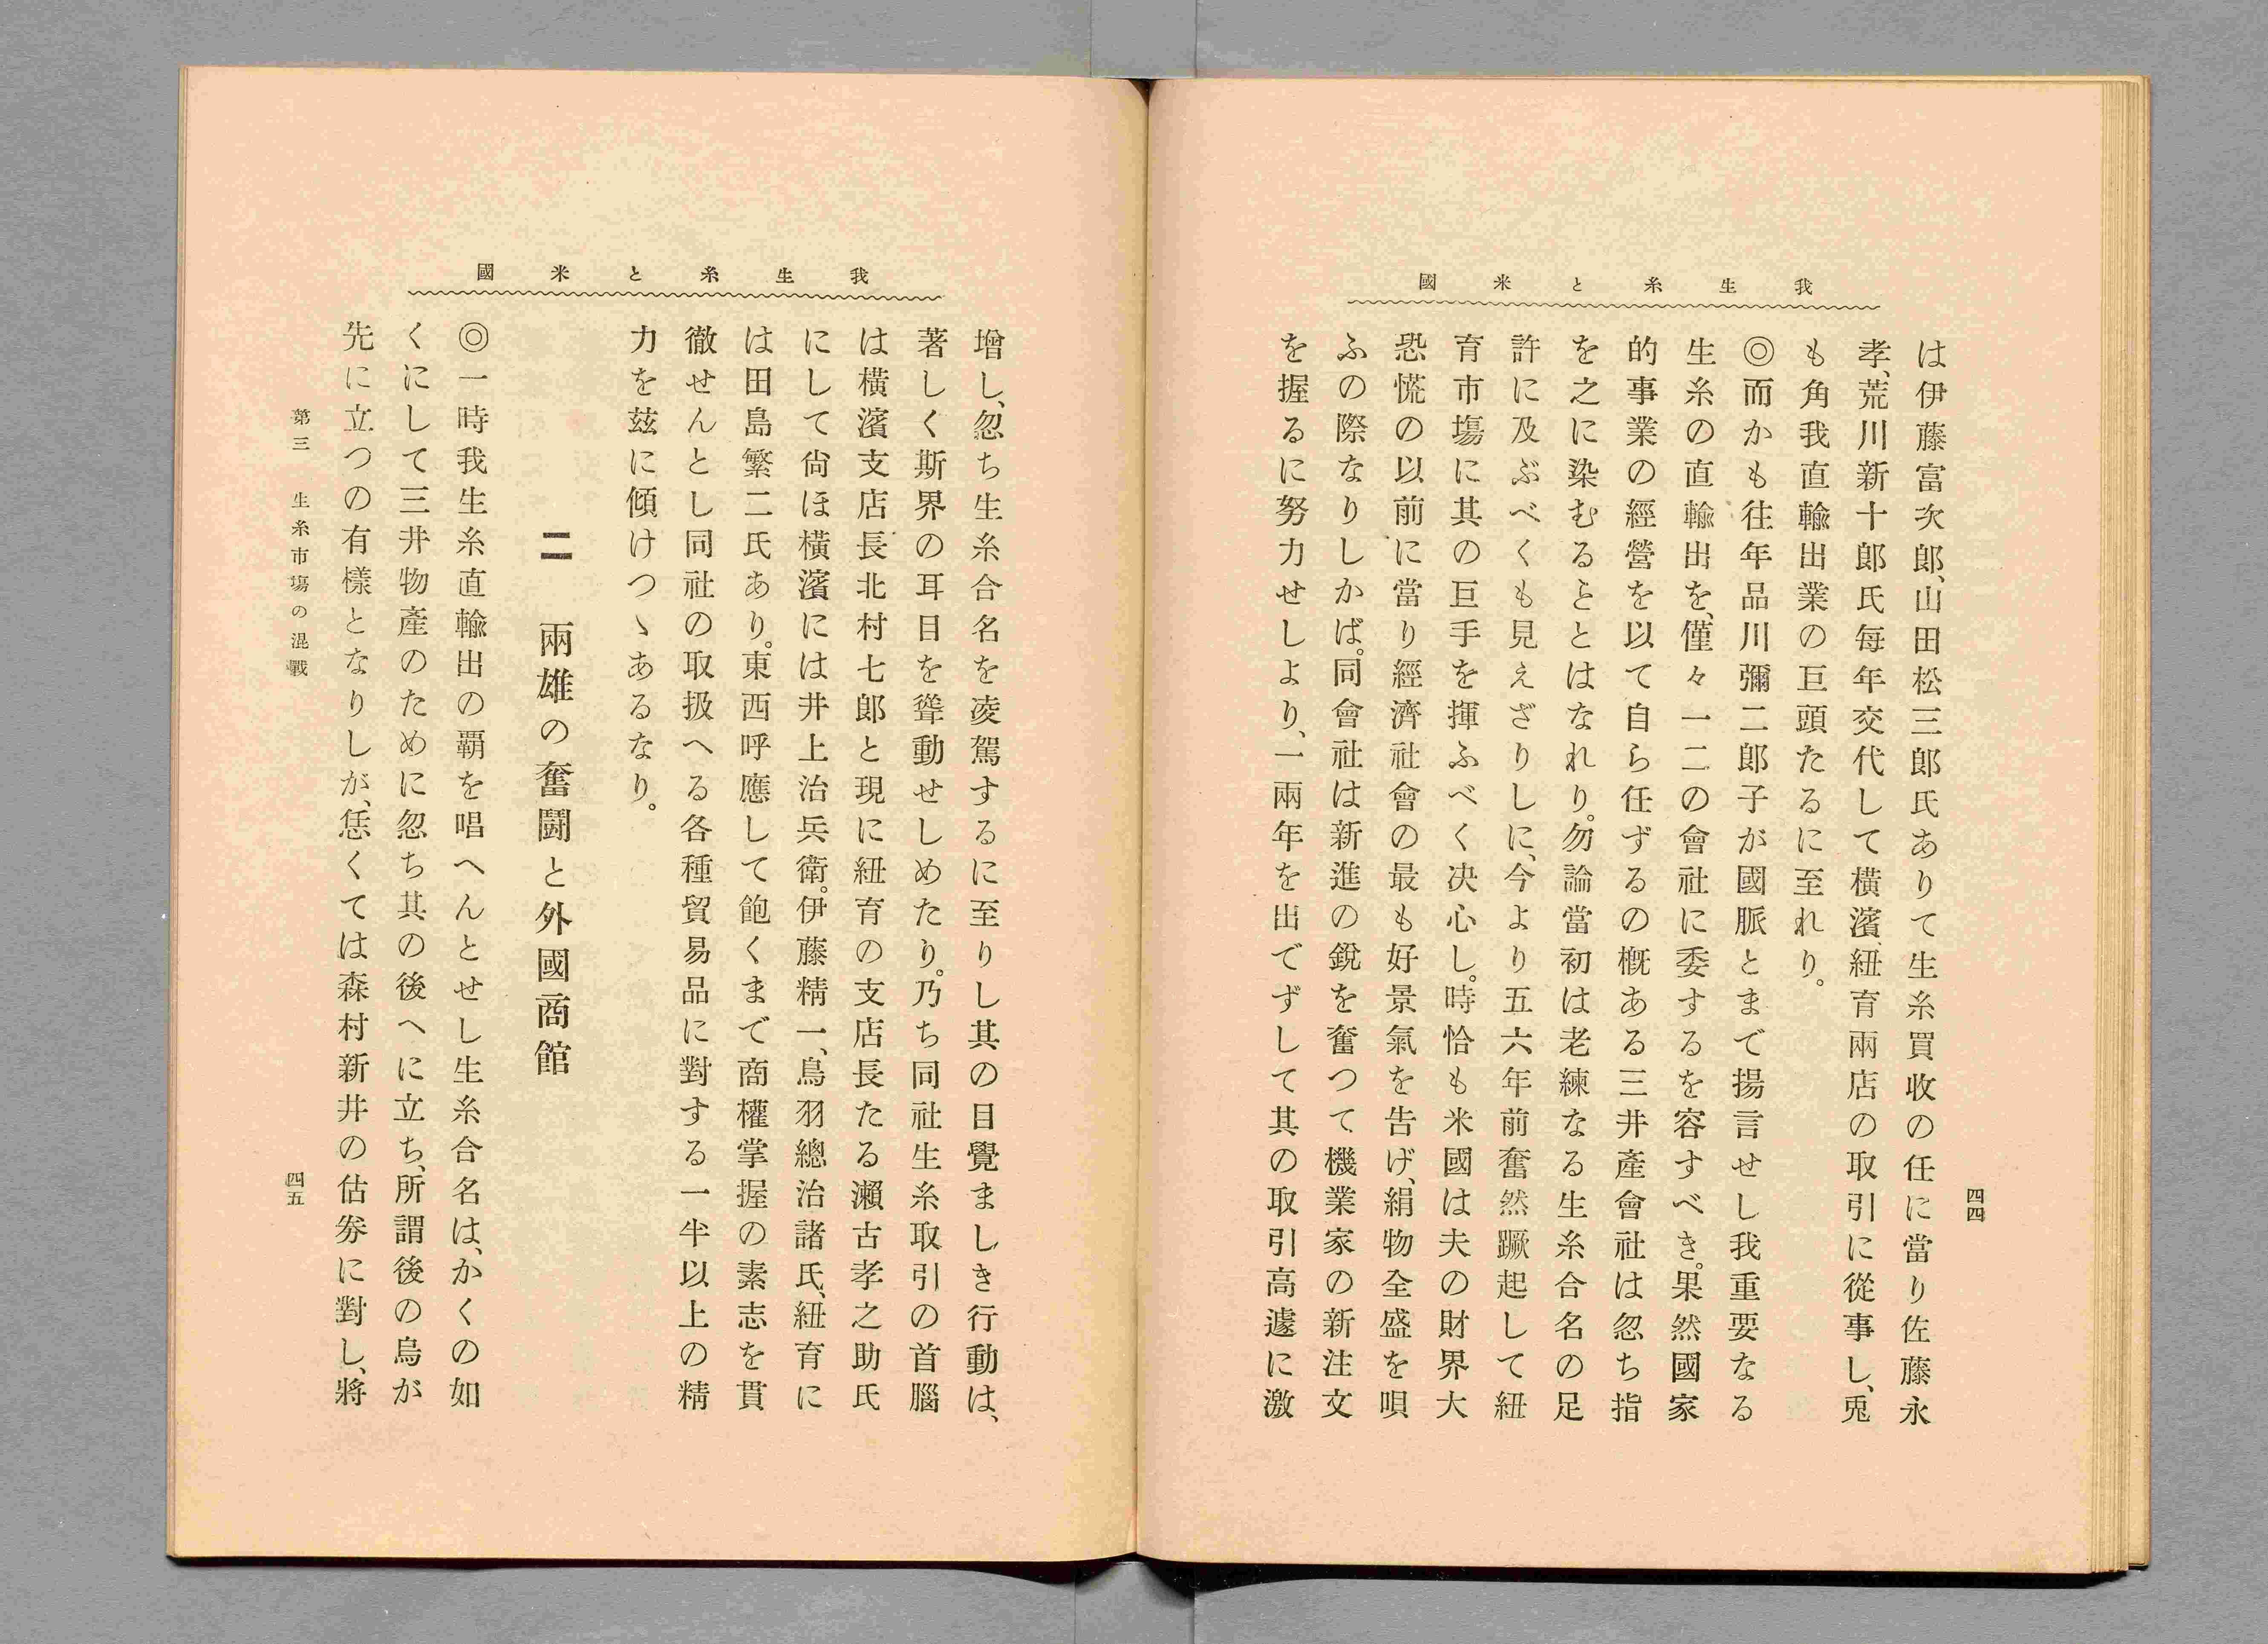 我生糸と米國
四四
は伊藤富次郎、山田松三郎氏ありて生糸買收の任に當り佐藤永
孝、荒川新十郎氏每年交代して橫濱、紐育兩店の取引に從事し、兎
も角我直輸出業の巨頭たるに至れり。
◎而かも往年品川彌二郎子が國脈とまで揚言せし我重要なる
生糸の直輸出を、僅々一二の會社に委するを容すべき。果然國家
的事業の經營を以て自ら任ずるの槪ある三井產會社は忽ち指
を之に染むるととはなれり。勿論當初は老練なる生糸合名の足
許に及ぶべくも見えざりしに、今より五六年前奮然蹶起して紐
育市塲に其の巨手を揮ふべく决心し。時恰も米國は夫の財界大
恐慌の以前に當り經濟社會の最も好景氣を告げ、絹物全盛を唄
ふの際なりしかば。同會社は新進の銳を奮つて機業家の新注文
を握るに努力せしより、一兩年を出でずして其の取引高遽に激
我生糸と米國
增し、忽ち生糸合名を凌駕するに至りし其の目覺ましき行動は、
著しく斯界の耳目を聳動せしめたり。乃ち同社生糸取引の首腦
は橫濱支店長北村七郎と現に紐育の支店長たる瀨古孝之助氏
にして尙ほ橫濱には井上治兵衛。伊藤精一、鳥羽總治諸氏、紐育に
は田島繁二氏あり。東西呼應して飽くまで商權掌握の素志を貫
徹せんとし同社の取扱へる各種貿易品に對する一半以上の精
力を茲に傾けつゝあるなり。
二 兩雄の奮鬪と外國商館
◎一時我生糸直輸出の覇を唱へんとせし生糸合名は、かくの如
くにして三井物產のために忽ち其の後へに立ち、所謂後の烏が
先に立つの有樣となりしが、恁くては森村新井の估劵に對し、將
第三 生糸市塲の混戰
四五